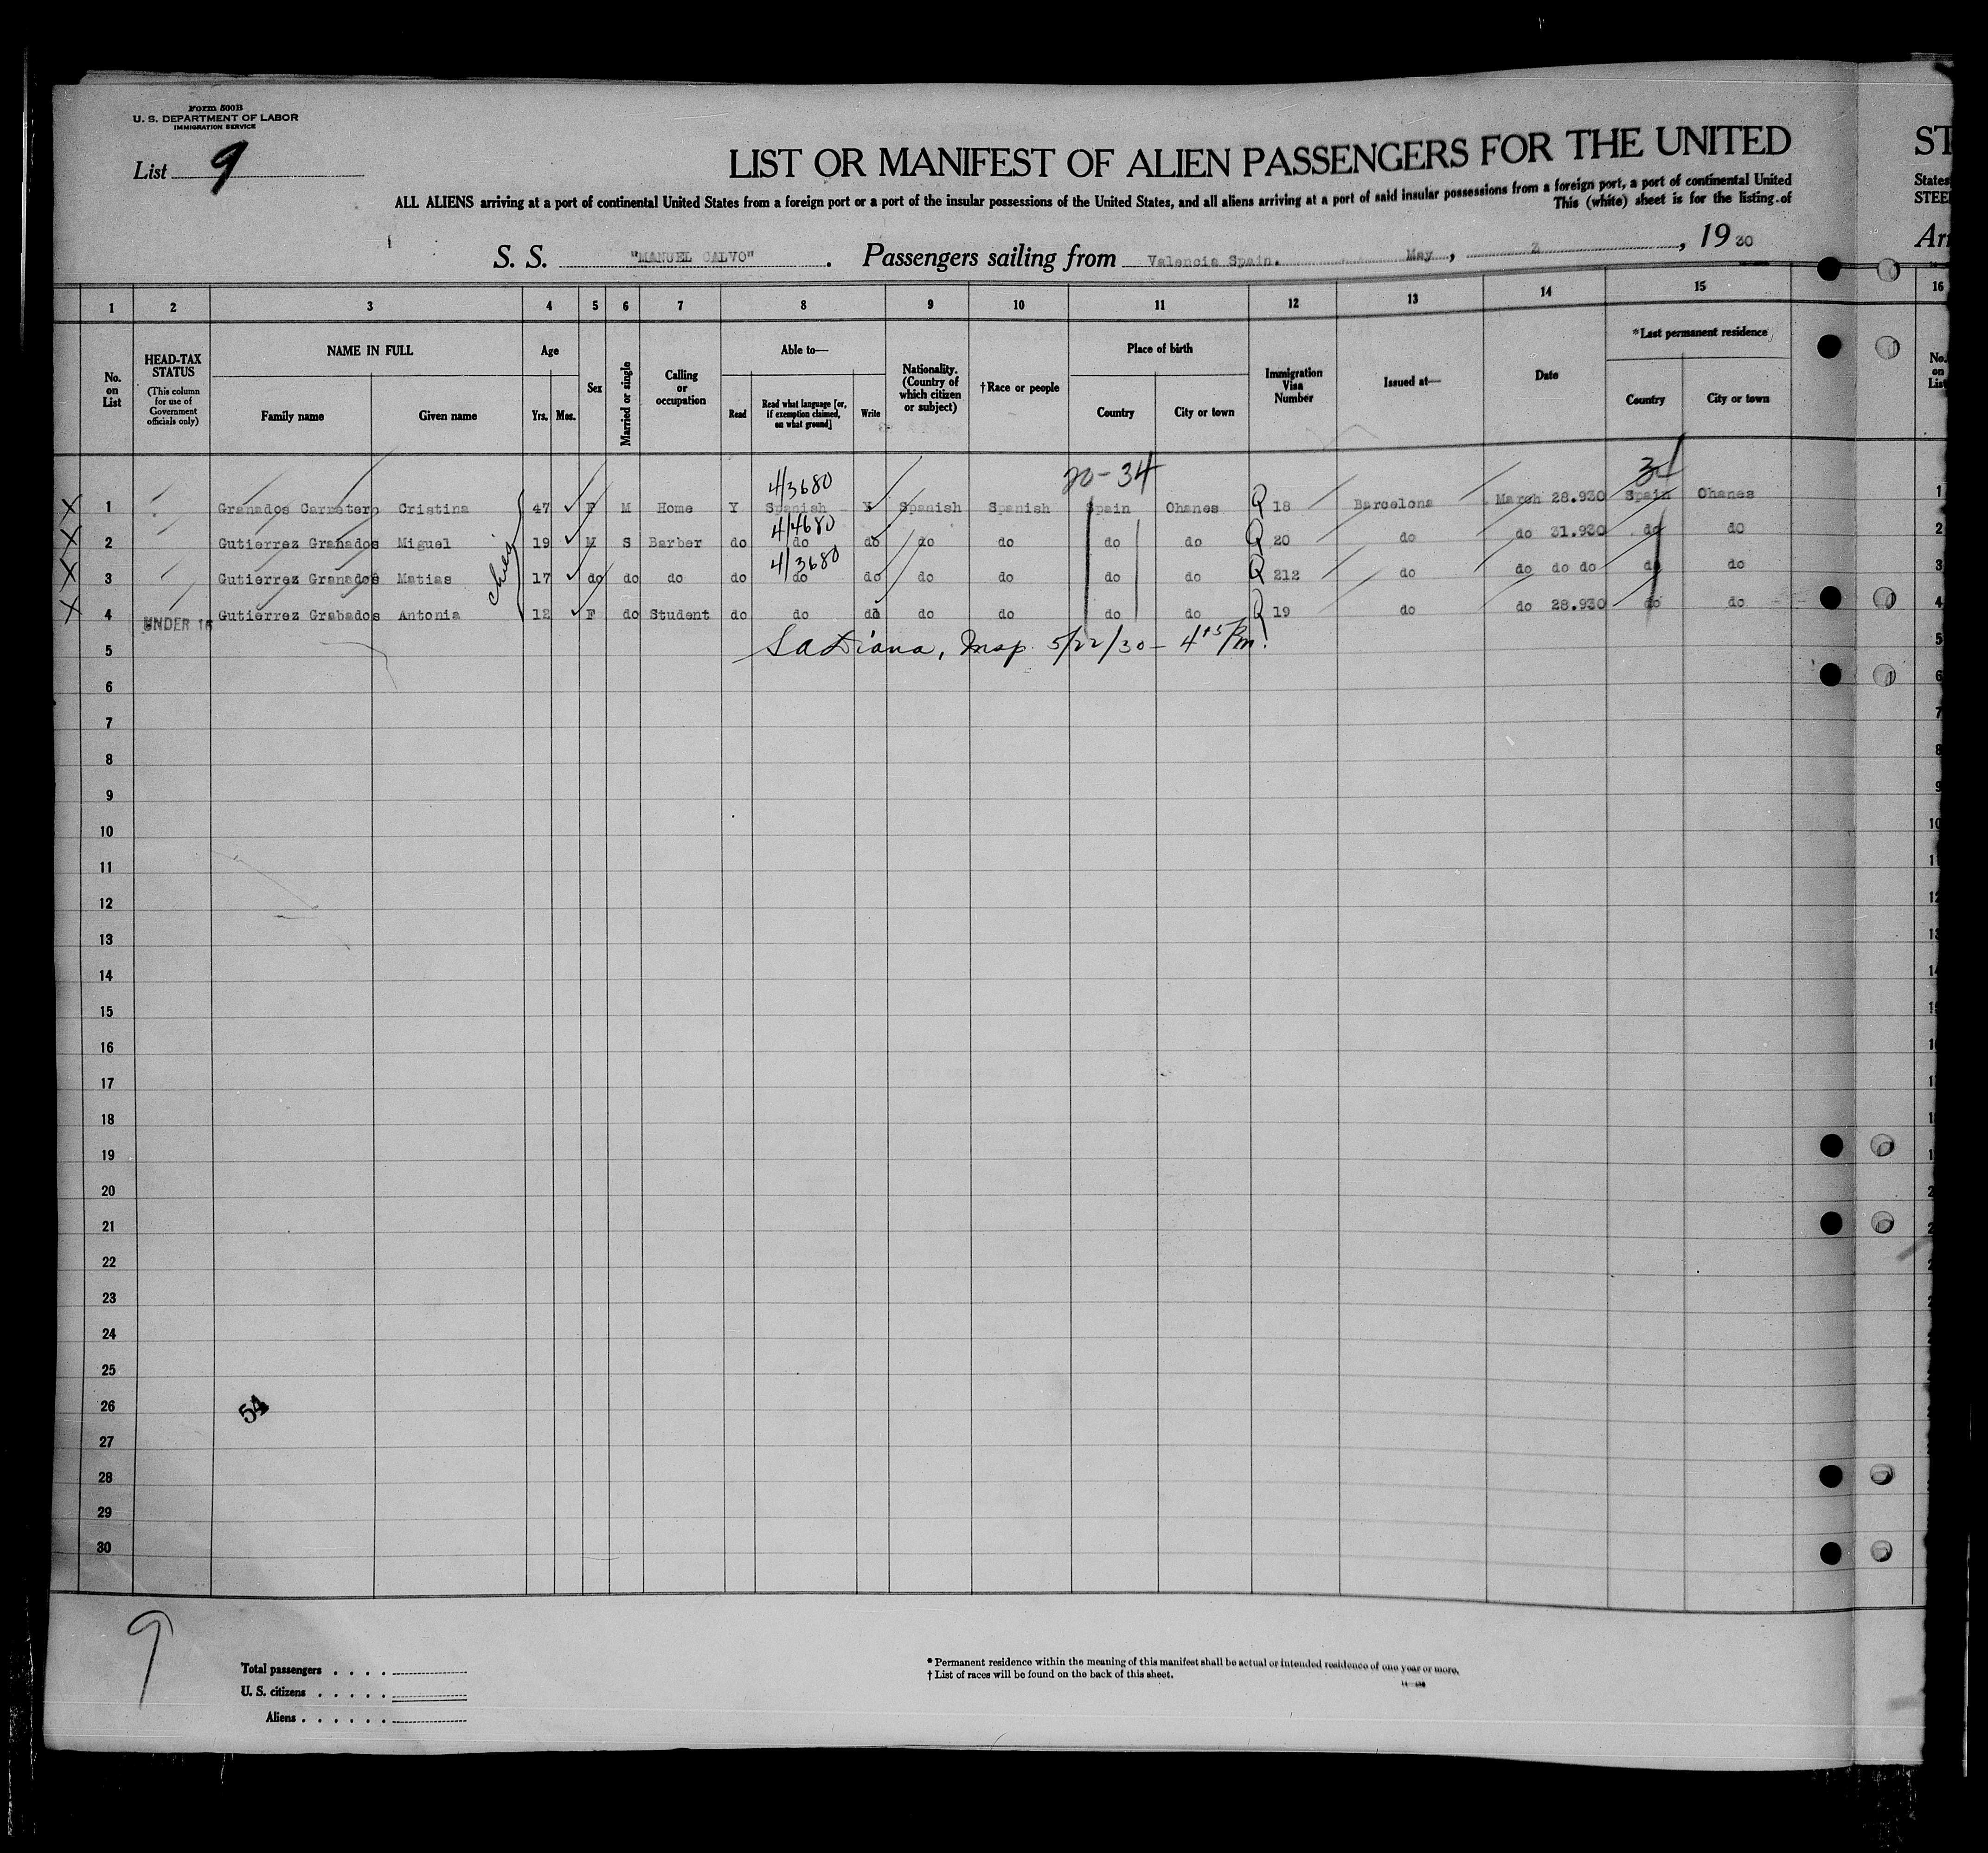 Form 500B
U. S. DEPARTMENT OF LABOR
IMMIGRATION SERVICE
List 9
LIST OR MANIFEST OF ALIEN PASSENGERS FOR THE UNITED
ST
ALL ALIENS arriving at a port of continental United States from a foreign port or a port of the insular possessions of the United States, and all aliens arriving at a port of said insular possessions from a foreign port, a port of continental United
States
This (white) sheet is for the listing of
STEE
S. S. "MANUEL CALVO". Passengers sailing from Valencia Spain. May, 2, 1930
Arr
1 2 3 4 5 6 7 8 9 10 11 12 13 14 15 16
No. on List
HEAD-TAX STATUS
(This column for use of Government officials only)
NAME IN FULL
Family name
Given name
Age
Yrs. Mos.
Sex
Married or single
Calling or occupation
Able to—
Read
Read what language [or, if exemption claimed, on what ground]
Write
Nationality. (Country of which citizen or subject)
†Race or people
Place of birth
Country
City or town
Immigration Visa Number
Issued at—
Date
*Last permanent residence
Country
City or town
No. on List
20-34
34
4/3680
X 1 Granados Carretero Cristina 47 F M Home Y Spanish Y Spanish Spanish Spain Ohanes Q 18 Barcelona March 28.930 Spain Ohanes 1
4/4680
X 2 Gutierrez Granados Miguel 19 M S Barber do do do do do do do Q 20 do do 31.930 do do 2
4/3680
X 3 Gutierrez Granados Matias 17 do do do do do do do do do do Q 212 do do do do do do 3
X 4 UNDER 16 Gutierrez Grabados Antonia 12 F do Student do do do do do do do Q 19 do do 28.930 do do 4
5 LaDiana, Insp. 5/22/30 - 4 15 Pm. 5
6 6
7 7
8 8
9 9
10 10
11 11
12 12
13 13
14 14
15 15
16 16
17
18
19
20
21
22
23
24
25
26
54
27
28
29
30
9
Total passengers . . . .
U. S. citizens . . . . .
Aliens . . . . . .
* Permanent residence within the meaning of this manifest shall be actual or intended residence of one year or more.
† List of races will be found on the back of this sheet.